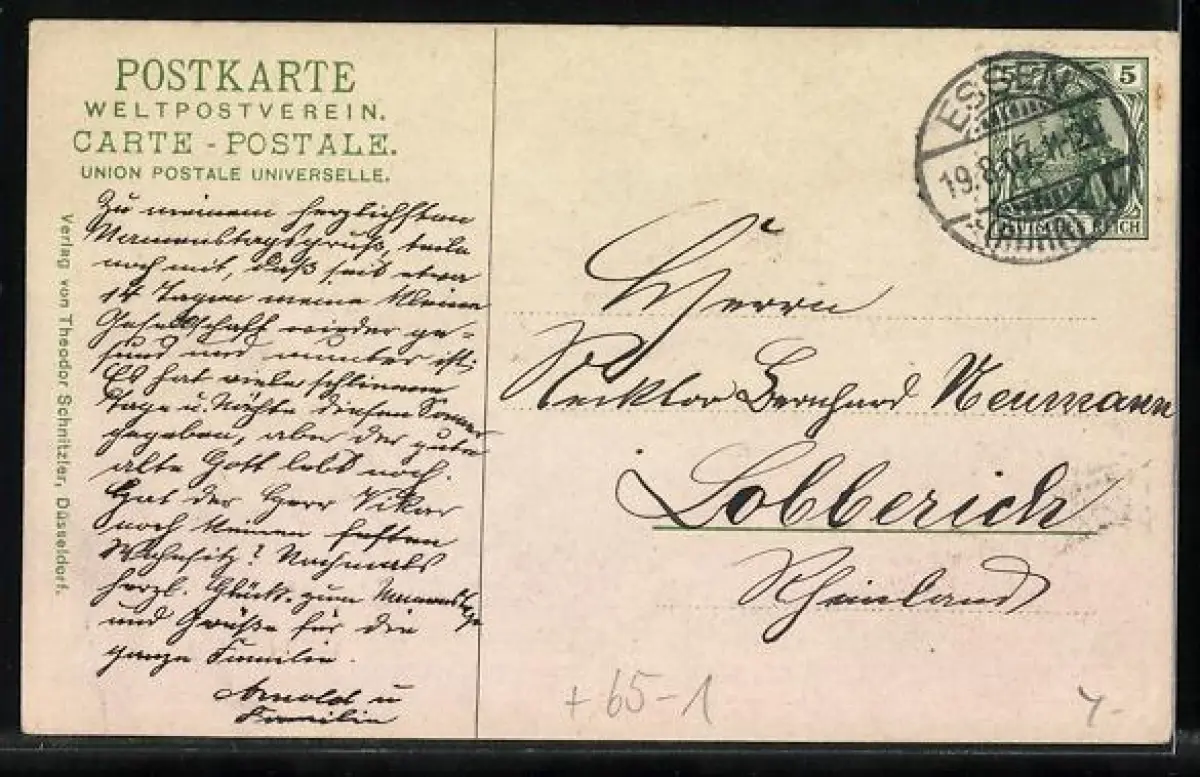 POSTKARTE
WELTPOSTVEREIN.
CARTE - POSTALE.
UNION POSTALE UNIVERSELLE.
Zu meinem herzlichsten
Namenstagsgruß, teile
noch mit, daß seit etwa
14 Tagen meine kleine
Gesellschaft wieder ge-
sund und munter ist;
Es hat viele schlimme
Tage u. Nächte diesen Sommer
gegeben, aber der gute
alte Gott lebt noch.
Hat der Herr Vikar
noch keinen festen
Wohnsitz? Nochmals
herzl. Glück. zum Namenstage
und Grüße für die
ganze Familie.
Arnold u
Familie
Verlag von Theodor Schnitzler, Düsseldorf.
ESSEN
19.8.07. 11-12
5 5
DEUTSCHES REICH
Herrn
Rektor Bernhard Neumann
Lobberich
Rheinland
+65-1